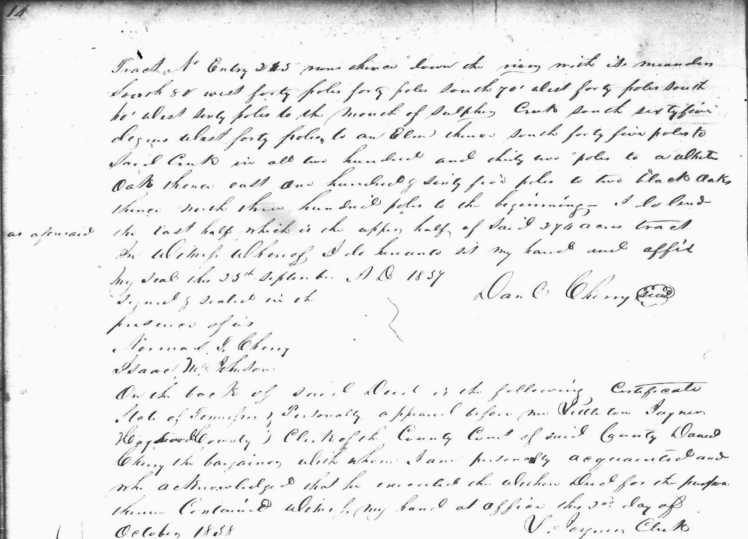 14
Tract No Entry 245 runs thence down the river with its meanders
South 80° west forty poles forty poles south 70° West forty poles south
60° West sixty poles to the mouth of Sulphur Creek south sixty five
degrees West forty poles to an Elm thence south forty five poles to
Said Creek in all two hundred and thirty two poles to a White
Oak thence east one hundred & sixty five poles to two black Oaks
thence north three hundred poles to the beginning I
as aforesaid the East half which is the upper half of Said 274 acres tract
In Witness Whereof I do hereunto set my hand and affix
my seal this 25th September A D 1837
Signed & sealed in the Dan C Cherry Seal
presence of us
Norman I. Cherry
Isaac M. Johnson
On the back of said Deed is the following Certificate
State of Tennessee } Personally appeared before me Littleton Joyner
Haywood County } Clerk of the County Court of said County Daniel
Cherry the bargainor with whom I am personally acquainted and
who acknowledged that he executed the within Deed for the purpose
therein Contained Witness my hand at office this day of
October 1838 L. Joyner Clerk